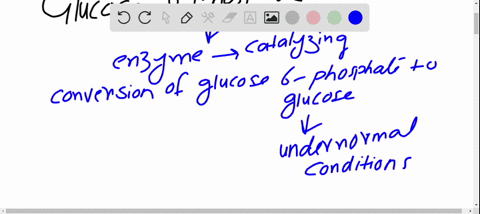 enzyme → catalyzing
conversion of glucose 6-phosphate to
glucose
↓
undernormal
conditions